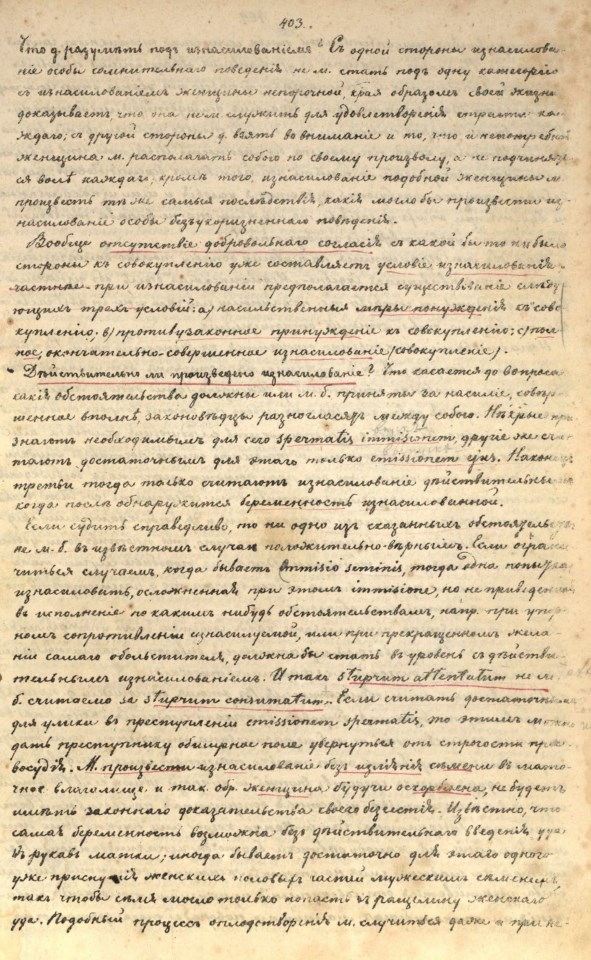 403.
Что д. разумѣть подъ изнасилованіемъ? Съ одной стороны изнасилова-
ніе особы сомнительнаго поведенія не м. стать подъ одну категорію
съ изнасилованіемъ женщины непорочной, коя образомъ своей жизни
доказываетъ что она не м. служить для удовлетворенія страсти ка-
ждаго; съ другой стороны д. взять во вниманіе и то, что и
женщина м. располагать собою по своему произволу, а не подчинять-
ся волѣ каждаго; кромѣ того, изнасилованіе подобной женщины м.
произвесть тѣ же самыя послѣдствія, какія могло бы произвести из-
насилованіе особы безъукоризненнаго поведенія.
Вообще отсутствіе добровольнаго согласія съ какой бы то ни было
стороны къ совокупленію уже составляетъ условіе изнасилованія
частное при изнасилованіи предполагается существованіе слѣду-
ющихъ трехъ условій: а) насильственныя мѣры понужденія къ сово-
купленію; в) противузаконное принужденіе къ совокупленію; с) пол-
ное, окончательно-совершенное изнасилованіе (совокупленіе).
Дѣйствительно ли произведено изнасилованіе? Что касается до вопроса
какія обстоятельства должны или м. б. приняты за насиліе, совер-
шенное вполнѣ, законовѣдцы разногласятъ между собою. Нѣкрые при-
знаютъ необходимымъ для сего spermatis immissionem, другіе же счи-
таютъ достаточнымъ для этаго только emissionem ejus. Наконецъ
третьи тогда только считаютъ изнасилованіе дѣйствительнымъ
когда послѣ обнаружится беременность изнасилованной.
Если судить справедливо, то ни одно изъ сказанныхъ обстоятельствъ
не м. б. въ извѣстномъ случаѣ положительно-вѣрнымъ. Если ограни-
читься случаемъ, когда бываетъ immisio seminis, тогда одна попытка
изнасиловать, осложненная при этомъ immisione, но не приведенная
въ исполненіе по какимъ нибудь обстоятельствамъ, напр. при упор-
номъ сопротивленіи изнасилуемой, или при прекращенномъ жела-
ніи самаго обольстителя, должна бы стать въ уровень съ дѣйстви-
тельнымъ изнасилованіемъ. И такъ stuprum attentatum не м.
б. считаемо за stuprum consumatum. Если считать достаточнымъ
для улики въ преступленіи emissionem spermatis, то этимъ можно
дать преступнику обширное поле увернуться отъ строгости пра-
восудія. М. произвести изнасилованіе безъ изліянія сѣмени въ маточ-
ное влагалище и так. обр. женщина будучи оскорблена, не будетъ
имѣть законнаго доказательства своего безчестія. Извѣстно, что
самая беременность возможна безъ дѣйствительнаго введенія уда
въ рукавъ матки; иногда бываетъ достаточно для этаго одного
уже женскихъ половыхъ частей мужескимъ сѣменемъ,
такъ чтобы сѣмя могло только попасть въ ращелину женскаго
уда. Подобный процессъ оплодотворенія м. случиться даже и при не-